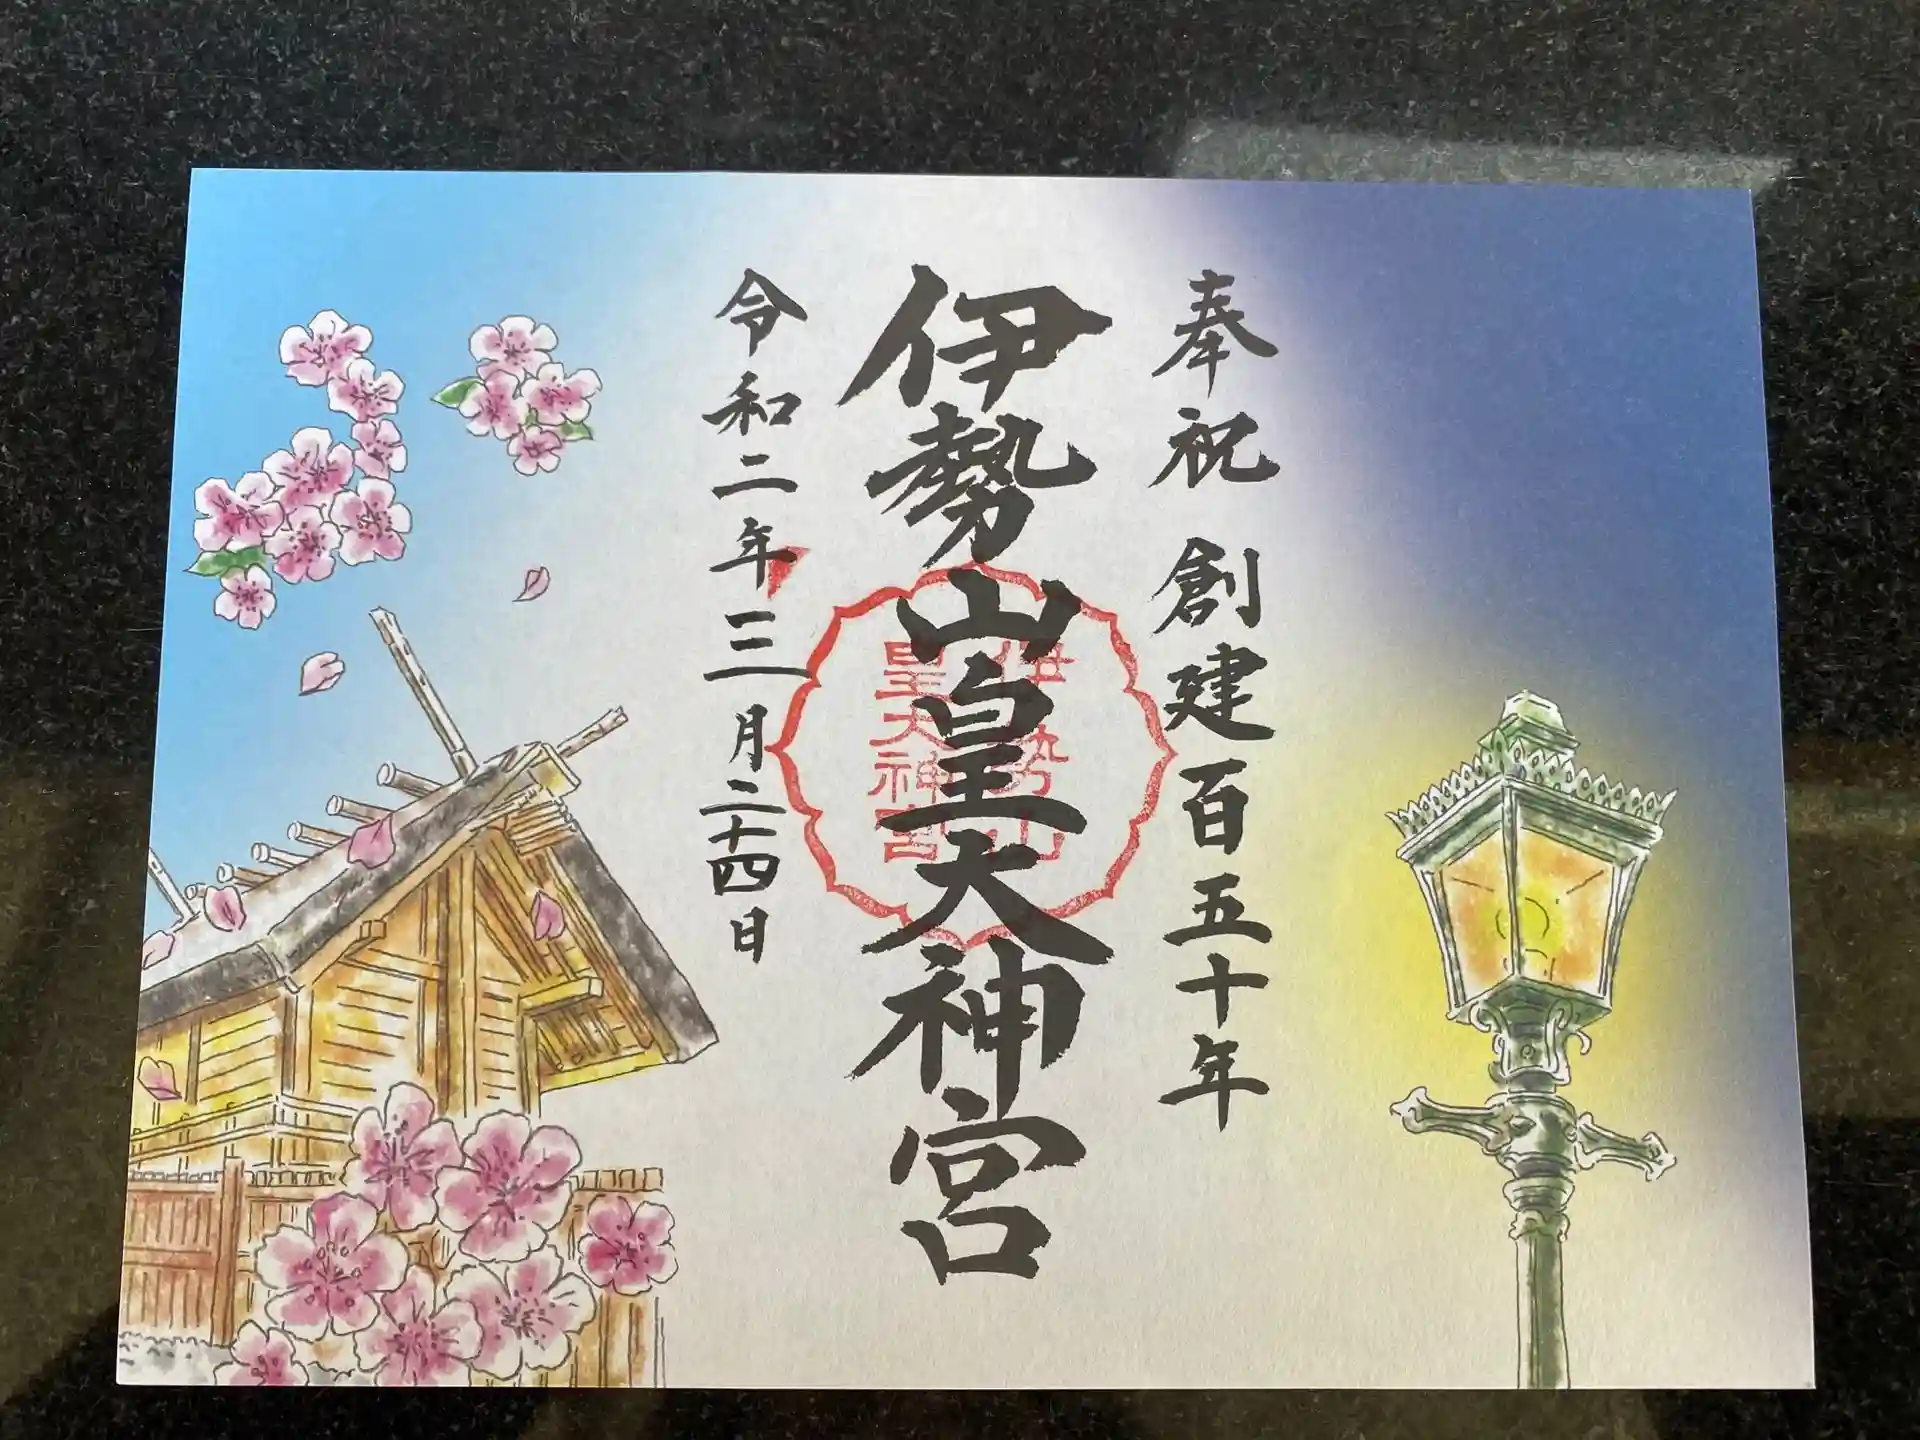 奉祝 創建百五十年
伊勢山皇大神宮
伊勢山
皇大神宮
令和二年三月二十四日